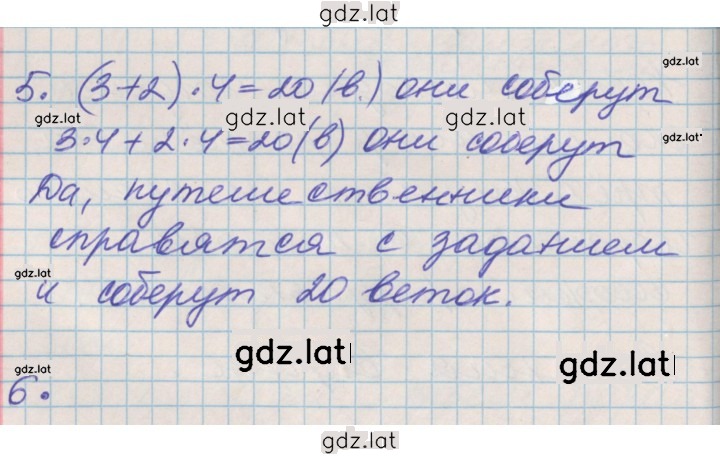 gdz.lat
5. (3+2)·4=20(в.) они соберут
gdz.lat
gdz.lat gdz.lat gdz.lat
3·4+2·4=20(в) они соберут
Да, путешественники
справятся с заданием
gdz.lat
и соберут 20 веток.
gdz.lat gdz.lat
6.
gdz.lat